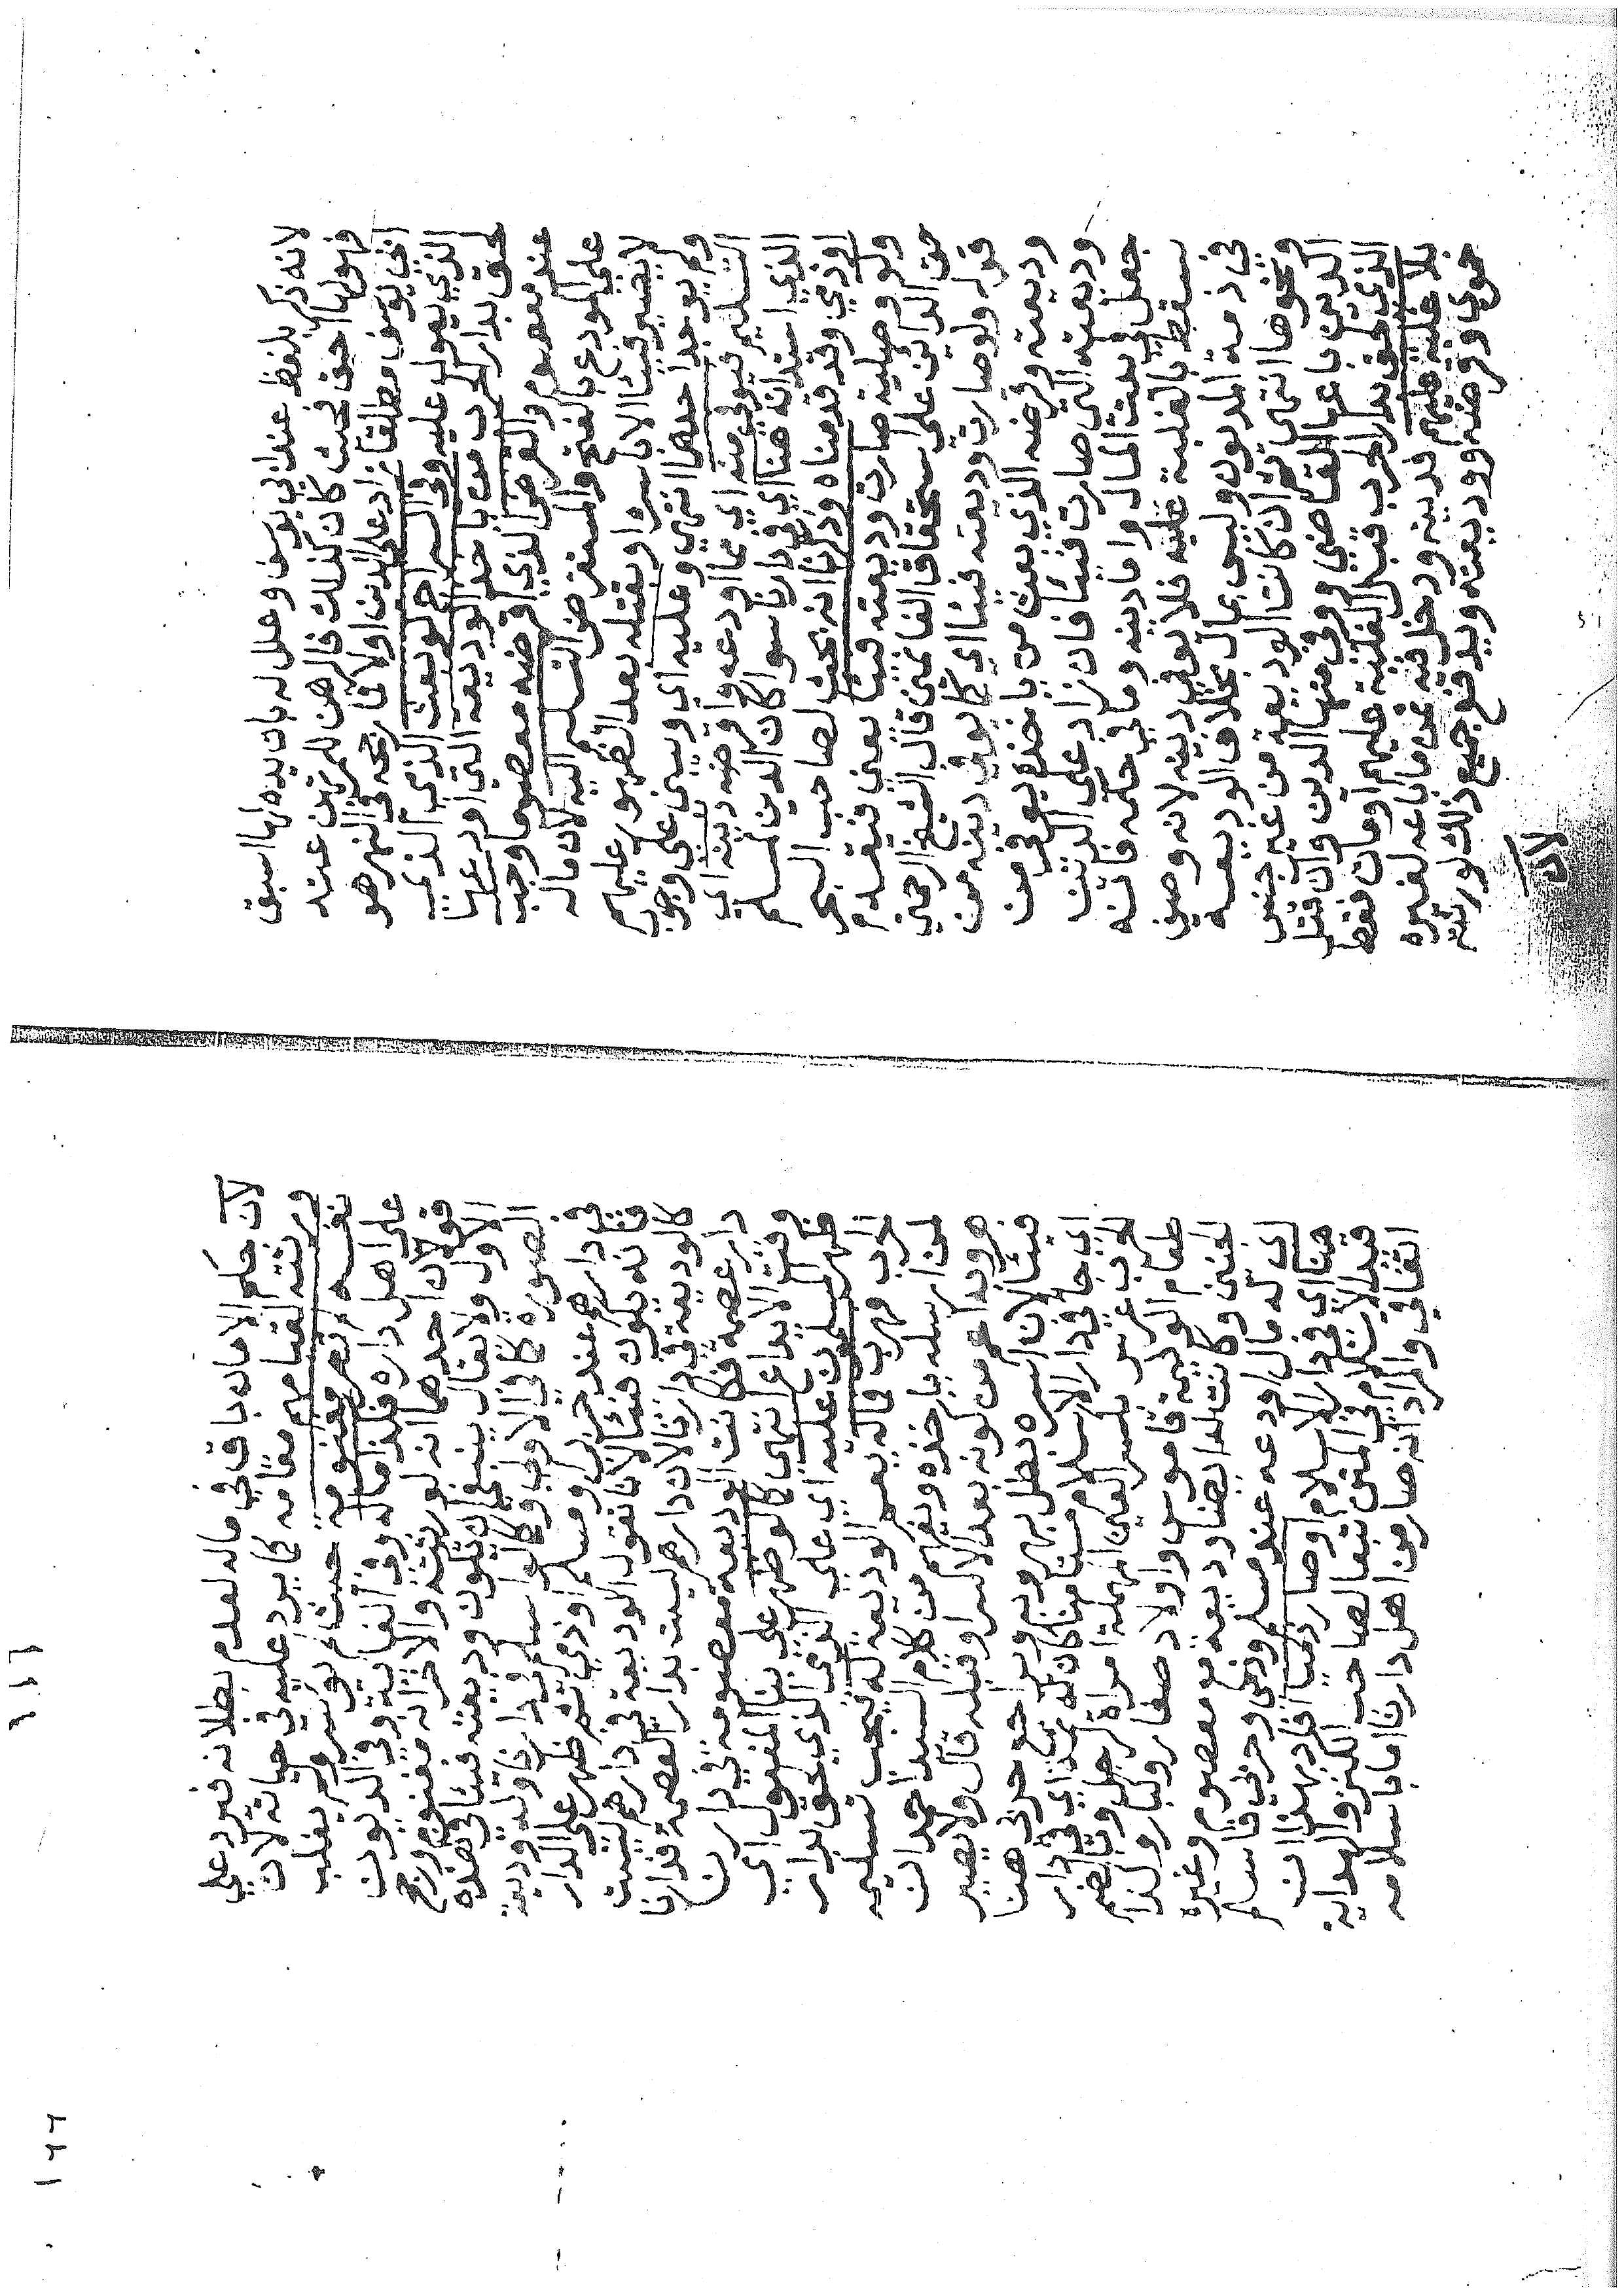 لانه ذكر بلفظ عند ابي يوسف وعلل له بان يده لها اسبق
فهو لها احق فحيث كان كذلك فالرهن للمرتهن عنده
ابي يوسف مطلقا زاد على الدين او لا رجحه في النهر هو
الذي يعول عليه وفي السراج لو بعث الذمي الذي
لحق بدار الحرب من ياخذ الوديعة التي اودعها
عند معصوم والقرض الذي اقرضه معصوما وجب
على المودع بالفتح والمستقرض التسليم اليه لان ماله
لا يصير فيئا الا باسره او بقتله بعد الظهور عليهم
ولم يوجد احدهما انتهى وعليه اي ويبنى على وجوب
التسليم فيوفى منه اي مما اودعه واقرضه دينه اي
الذي استدانه هنا اي في دارنا سوا كان الدين لمسلم
او ذمي وقد قدمناه وذكرنا انه بحث لصاحب البحر
ولو وصلية صارت وديعته فيئا يعني فيقدم
حق الدائن على استحقاق الغانمين قال الشيخ الرحمتي
قوله ولو صارت وديعته فيئا اي كما يوفى دينه من
وديعته وقرضه الذي بعث من ياخذه يوفى من
وديعته التي صارت فيئا فان زاد على الدين
جعل في بيت المال واما دينه وما في حكمه فانه
يسقط بالغلبة عليه فلا يوفى دينه لانه وصف
في ذمة المديون وليس بمال بخلاف الوديعة
ونحوها انتهى ثم ان كانت الوديعة من غير جنس
الدين باعها القاضي ووفى منها الدين وان قتل
الذي لحق بدار الحرب قبل الغلبة عليهم او مات فقط
بلا غلبة عليهم فدينه ودخل فيه ثمن ما باعه لغيره
حموي وقرضه ووديعته ويدفع جميع ذلك لورثته
لان
لان حكم الامان باق في ماله لعدم بطلانه فيرد على
ورثته لقيامهم مقامه كما يرد عليه في حياته لان
نفسه لم تصر مغنومة حيث لم يؤسر ولم يغلب
على اهل داره فكذا ماله وفي الغاية وفي الديون
قولان احدهما انه لورثته والاخر انه مغنوم ورجح
الاول ولا يقال ينبغي ان تكون وديعته فيئا في هذه
الصورة كما في الاولى وكما لو اسلم في دارنا وله وديعة
في دارهم عند حربي او مسلم او ذمي ثم ظهر على الدار
فانه يكون فيئا لانا نقول الوديعة في دارهم ليست
كالوديعة في دارنا لان دارهم ليست بدار العصمة ودارنا
دار عصمة فكانت الوديعة معصومة في دارنا
وقت الايداع انتهى كما لو ظهر على بنا المفعول اي
ظهر المسلمون عليه اي على الذمي الذي لحق بدار
الحرب فهرب فماله يعم الوديعة له يجب تسليمه
لمن ارسله ياخذه ويفهم من كلام السيد احمد ان
هروبه اعم من كونه بعد الاسر او قبله قال ولا يصير
فيئا لان اسره بطل بهروبه وراجع حربي هنا
اي جا في دار الاسلام مستامنا كان له ثمة اي في دار
الحرب عرس بكسر العين المهملة امراة الرجل وبالضم
طعام الوليمة قاموس واولاد صغار وكبار ولذا
لعبني وكانت له ايضا وديعة مع معصوم وغيره
اي له مال اودعه عند مسلم وذمي وحربي فاسلم
هنا اي في دار الاسلام او صار ذميا افاد بهذا ان
قيد الاسلام في المتن تبعا لصاحب الكنز والهداية
اتفاقي والمراد انه صار من اهل دارنا اما باسلامه